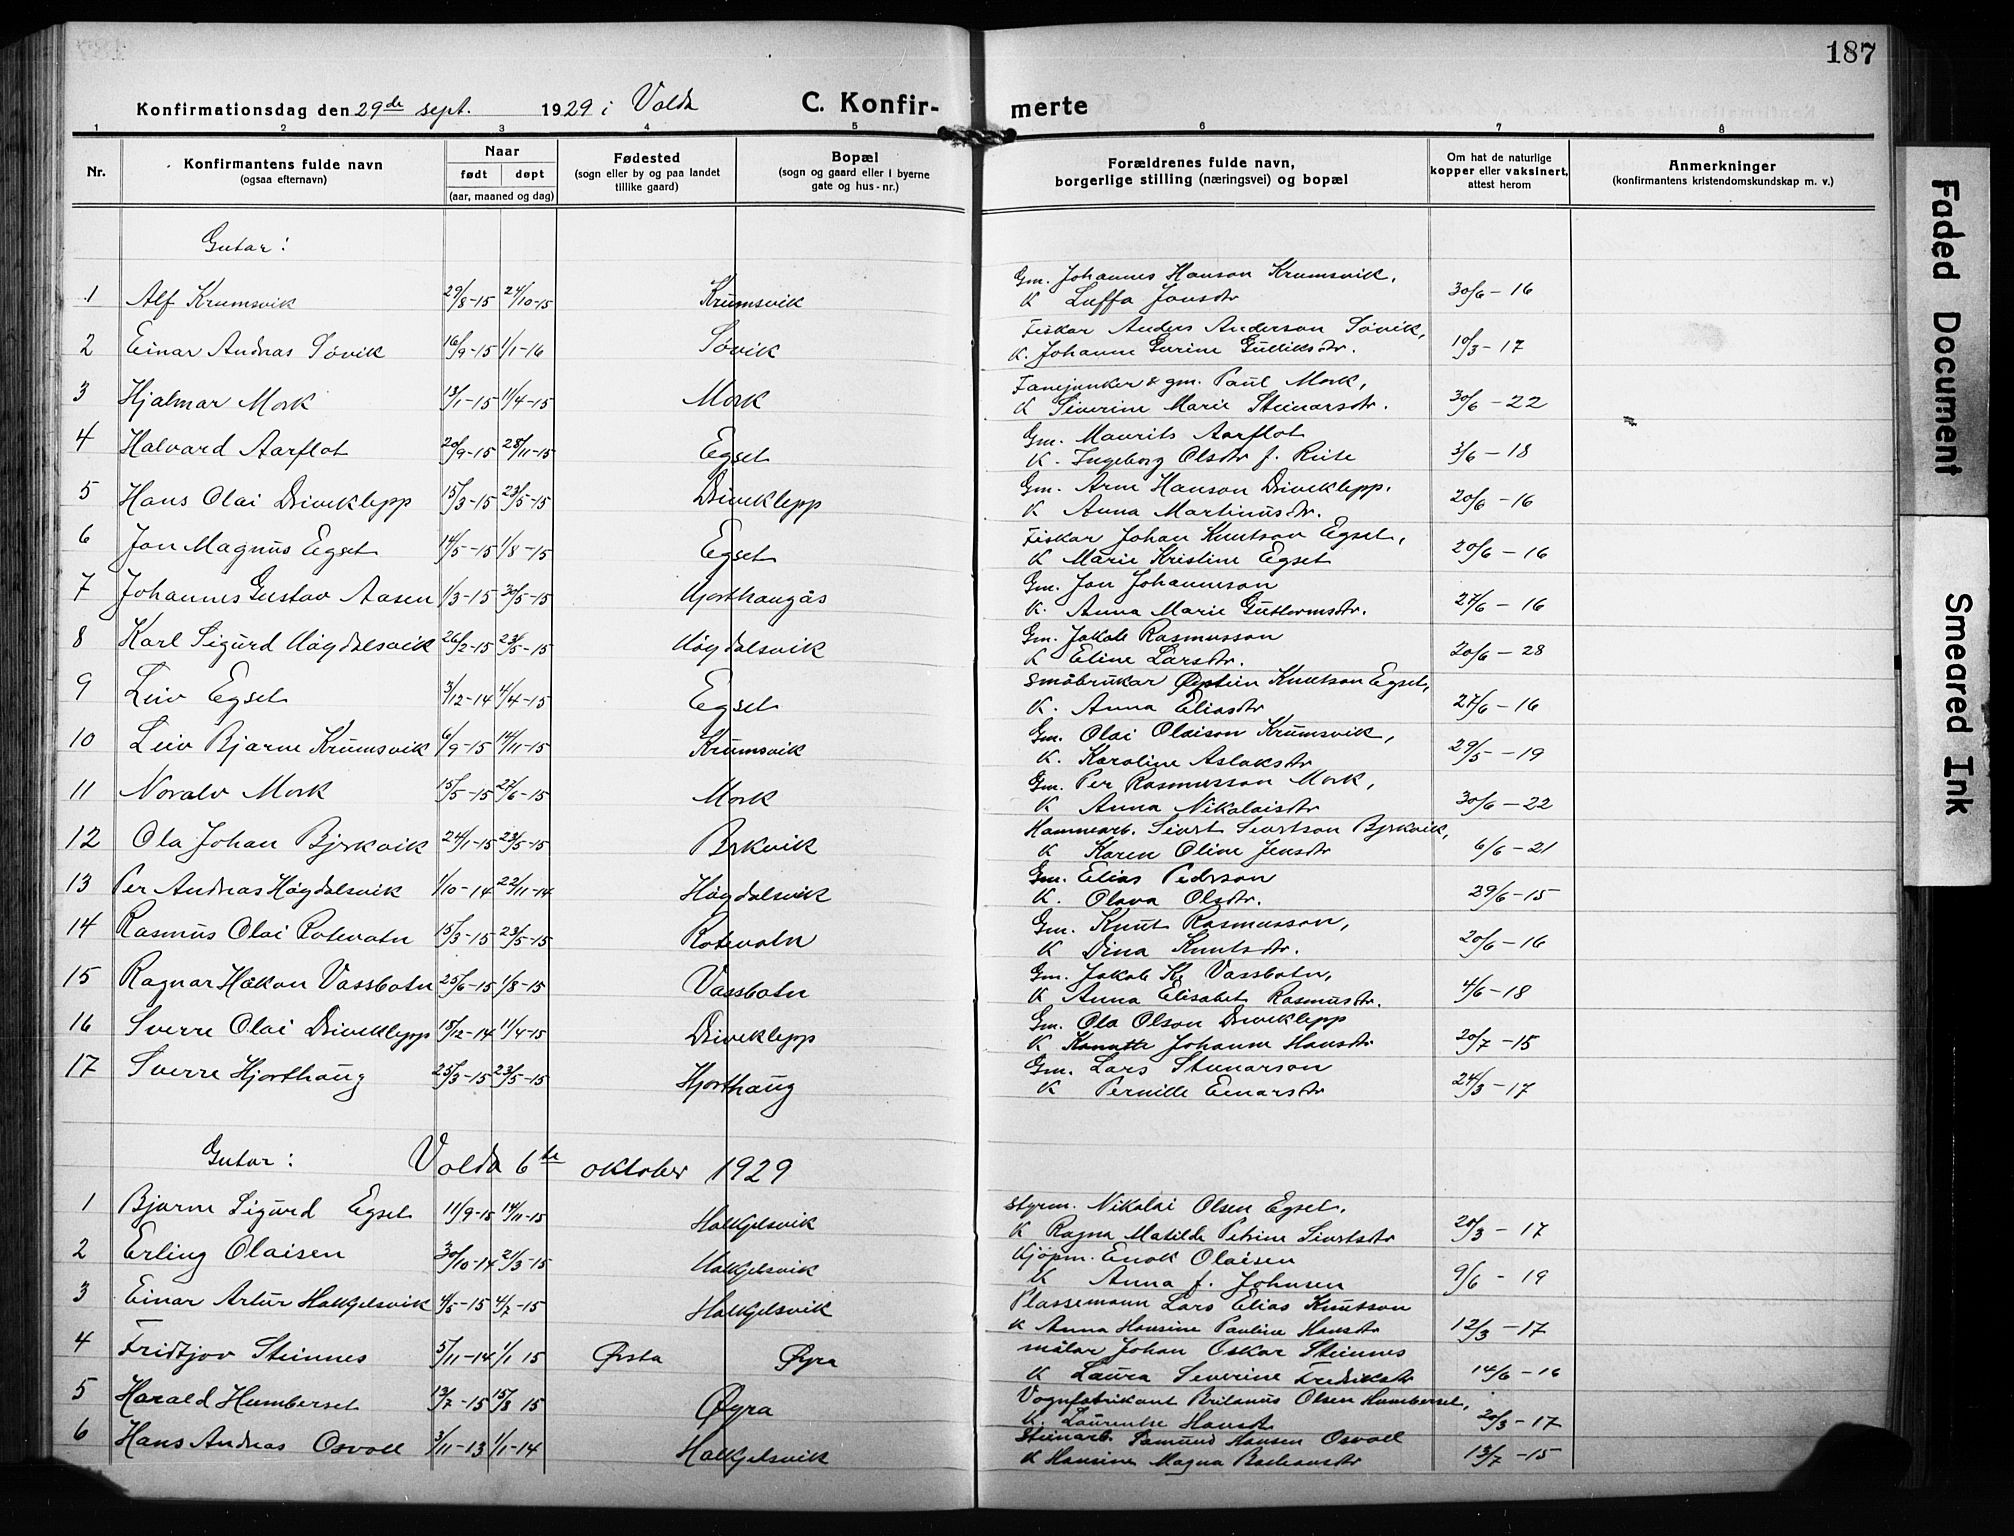 187
Konfirmationsdag den 29de sept. 1929 i Volda C. Konfirmerte
1 2 3 4 5 6 7 8
Nr. Konfirmantens fulde navn (ogsaa efternavn) Naar født døpt (aar, maaned og dag) Fødested (sogn eller by og paa landet tillike gaard) Bopæl (sogn og gaard eller i byerne gate og hus-nr.) Forældrenes fulde navn, borgerlige stilling (næringsvei) og bopæl Om hat de naturlige kopper eller vaksinert, attest herom Anmerkninger (konfirmantens kristendomskundskap m. v.)
Gutar:
1 Alf Krumsvik 29/8-15 24/10-15 Krumsvik Gm. Johannes Hanson Krumsvik, K Luffa Jonsdtr 30/6-16
2 Einar Andreas Søvik 16/9-15 1/1-16 Søvik Fiskar Anders Anderson Søvik, K. Johanne Gurine Gulliksdtr. 10/3-17
3 Hjalmar Mork 13/1-15 11/4-15 Mork Fanejunker & gm. Paul Mork, K Siverine Marie Steinarsdtr. 30/6-22
4 Halvard Aarflot 20/9-15 28/11-15 Egset Gm. Maurits Aarflot K. Ingeborg Olsdtr f. Rute 3/6-18
5 Hans Olai Driveklepp 15/3-15 23/5-15 Driveklepp Gm. Arne Hanson Driveklepp. K Anna Martinusdtr. 20/6-16
6 Jon Magnus Egset 14/5-15 1/8-15 Egset Fiskar Johan Knutson Egset, K Marie Kristine Egset 20/6-16
7 Johannes Gustav Aasen 1/3-15 30/5-15 Hjorthaugås Gm. Jon Johannesson K. Anna Marie Guttormsdtr. 27/6-16
8 Karl Sigurd Høgdalsvik 26/2-15 23/5-15 Høgdalsvik Gm. Jakob Rasmusson K Eline Larsdtr. 20/6-28
9 Leiv Egset 3/12-14 4/4-15 Egset Småbrukar Øystein Knutson Egset, K. Anna Eliasdtr 27/6-16
10 Leiv Bjarne Krumsvik 6/9-15 14/11-15 Krumsvik Gm. Olai Olaison Krumsvik, K. Karoline Aslaksdtr 29/5-19
11 Noralv Mork 15/5-15 27/6-15 Mork Gm. Per Rasmusson Mork, K Anna Nikolaisdtr 30/6-22
12 Ola Johan Bjrkvik 24/1-15 23/5-15 Brkvik Hammearb. Sivert Sivertson Bjrkvik, K Karen Oline Jensdtr 6/6-21
13 Per Andreas Høgdalsvik 1/10-14 22/11-14 Høgdalsvik Gm. Elias Pederson K. Olava Olsdtr. 29/6-15
14 Rasmus Olai Rotevatn 15/3-15 23/5-15 Rotevatn Gm. Knut Rasmusson, K Dina Knutsdtr. 20/6-16
15 Ragnar Håkon Vassbotn 25/6-15 1/8-15 Vassbotn Gm. Jakob Kr Vassbotn, K Anna Elisabet Rasmusdtr. 4/6-18
16 Sverre Olai Driveklepp 15/12-14 11/4-15 Driveklepp Gm. Ola Olson Driveklepp K Johanne Hansdtr 20/7-15
17 Sverre Hjorthaug 25/3-15 23/5-15 Hjorthaug Gm. Lars Steinarson K Pernille Einarsdtr 24/3-17
Gutar: Volda 6te oktober 1929
1 Bjarne Sigurd Egset 11/9-15 14/11-15 Halkjelsvik Styrm. Nikolai Olsen Egset. K Ragna Matilde Petrine Sivertsdtr 20/3-17
2 Erling Olaisen 30/10-14 21/3-15 Halkjelsvik Kjøpm. Enok Olaisen K Anna f. Johnsen 9/6-19
3 Einar Artur Halkjelsvik 4/5-15 4/7-15 Halkjelsvik Plassemann Lars Elias Knutson K Anna Hansine Pauline Hansdtr 12/3-17
4 Fridtjov Steinnes 5/11-14 1/1 15 Ørsta Øyra målar Johan Oskar Steinnes K Laura Severine Fredriksdtr 14/6-16
5 Harald Humberset 13/7-15 15/8 15 Øyra Vognfabrikant Britanus Olsen Humberset, K. Laurentse Hansdtr 20/3-17
6 Hans Andreas Osvoll 3/11-13 1/1-14 Halkjelsvik Steinarb. Samund Hansen Osvoll K Hansine Magna 13/7-15
Faded Document
Smeared Ink